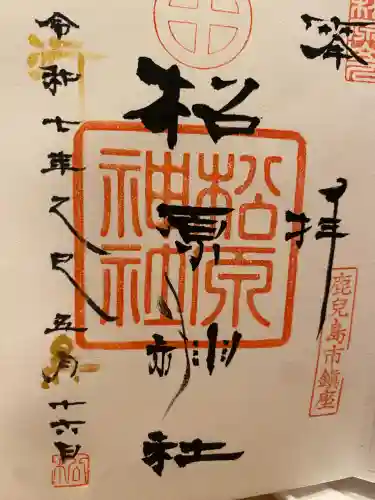 奉拝
鹿児島市鎮座
松原神社
松原神社
令和七年乙巳五月十六日
松